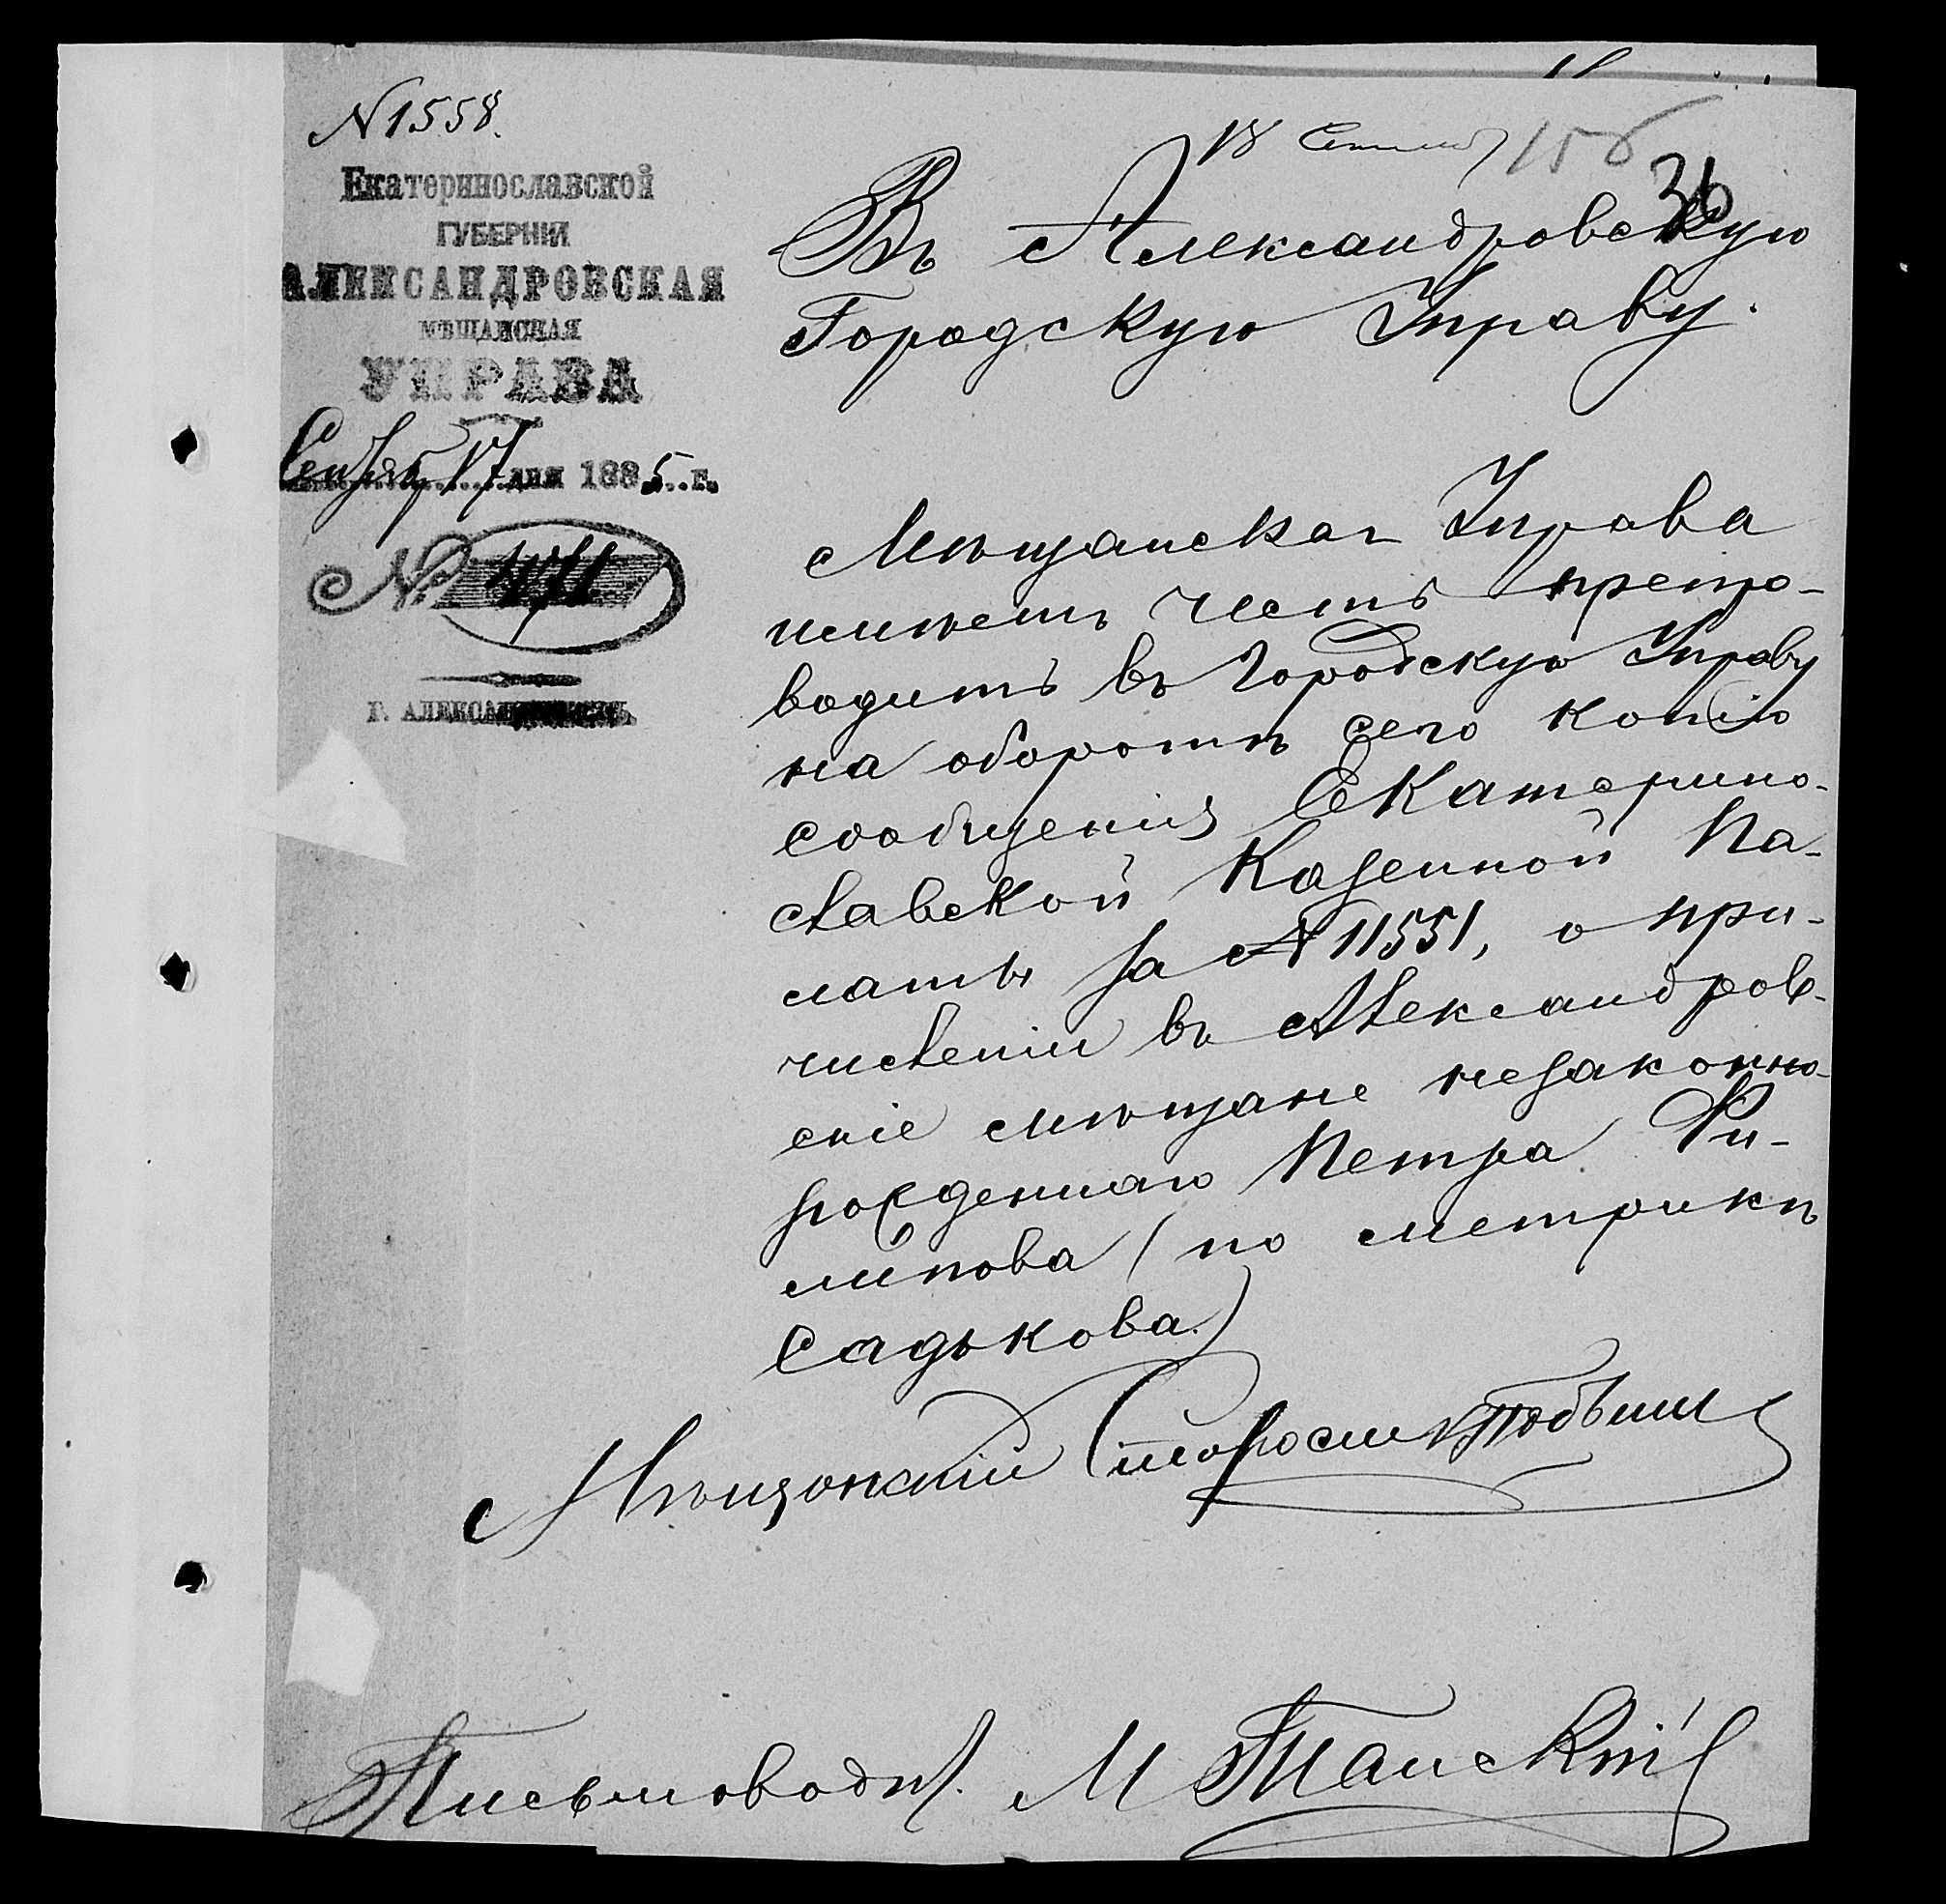 N 1558.
Екатеринославской
ГУБЕРНІИ
АЛЕКСАНДРОВСКАЯ
МѢЩАНСКАЯ
УПРАВА
17 дня 1885 г.
№ 471
Г. АЛЕКСАНДРОВСКЪ
18
156
36
Въ Александровскую
Городскую Управу.
Мѣщанская Управа
имѣетъ честь препро-
водить въ Городскую Управу
на оборотѣ сего копію
сообщенія Екатерино-
славской Казенной Па-
латы за N 11551, о при-
численіи въ Александров-
скіе мѣщане незаконно-
рожденнаго Петра Фи-
липова (по метрикѣ
Садькова.)
Мѣщанскій Староста
Письмовод. М